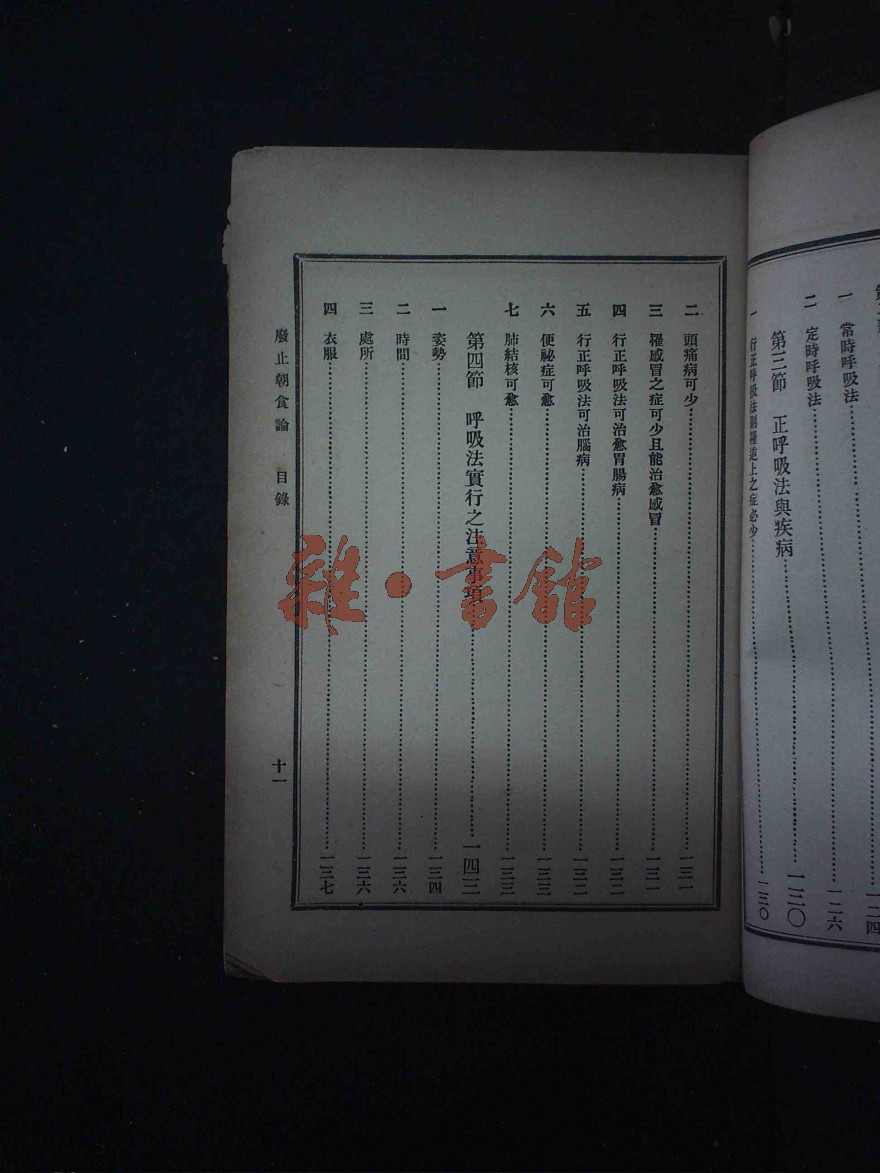 一 常時呼吸法 一二四
二 定時呼吸法 一二六
第三節 正呼吸法與疾病 一三〇
一 行正呼吸法則罹道上之症必少 一三〇
二 頭痛病可少 一三一
三 罹感冒之症可少且能治愈感冒 一三一
四 行正呼吸法可治愈胃腸病 一三二
五 行正呼吸法可治腦病 一三二
六 便祕症可愈 一三三
七 肺結核可愈 一三三
第四節 呼吸法實行之注意事項 一四三
一 姿勢 一三四
二 時間 一三六
三 處所 一三六
四 衣服 一三七
廢止朝食論 目錄 十一
雜·書館